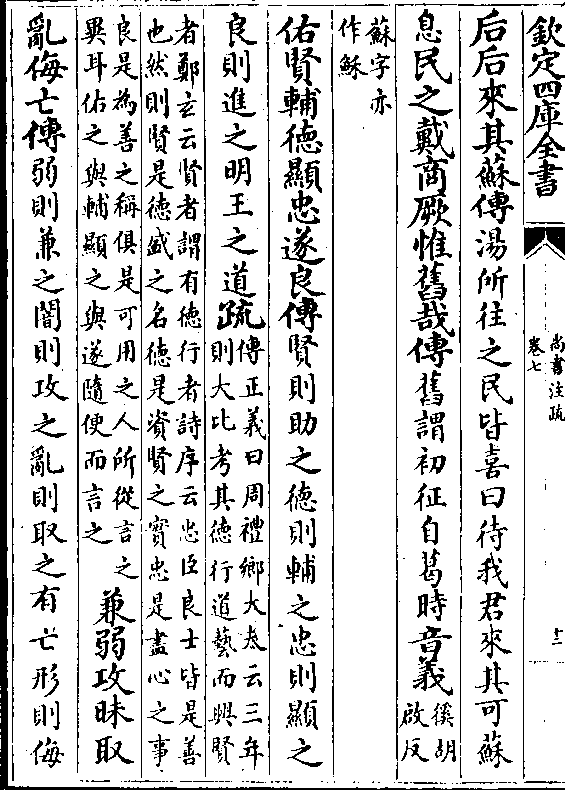 欽定四庫全書
尚書注疏
卷七
十二
后后來其蘇傳湯所往之民皆喜曰待我君來其可蘇
息民之戴商厥惟舊哉傳舊謂初征自葛時音義徯胡
啟反
蘇字亦
作穌
佑賢輔德顯忠遂良傳賢則助之德則輔之忠則顯之
良則進之明王之道疏傳正義曰周禮鄉大夫云三年
則大比考其德行道藝而興賢
者鄭玄云賢者謂有德行者詩序云忠臣良士皆是善
也然則賢是德盛之名德是資賢之實忠是盡心之事
良是為善之稱俱是可用之人所從言之
異耳佑之與輔顯之與遂隨便而言之
兼弱攻昧取
亂侮亡傳弱則兼之闇則攻之亂則取之有亡形則侮